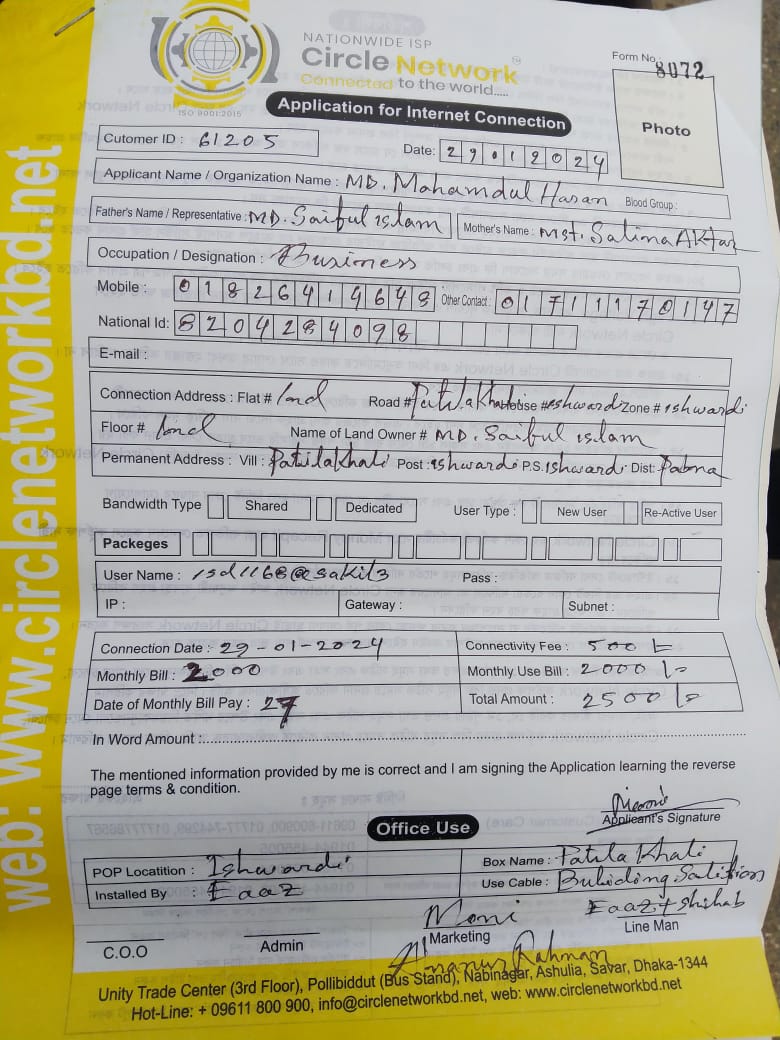 NATIONWIDE ISP
Circle Network
Connected to the world.....
ISO 9001:2015
Form No. 8072
Application for Internet Connection
Photo
Cutomer ID : 61205
Date: 29012024
Applicant Name / Organization Name : MD. Mahamdul Hasan Blood Group :
Father's Name / Representative : MD. Saiful islam Mother's Name : MST. Salima AKtar
Occupation / Designation : Business
Mobile : 01826414648 Other Contact : 01711170147
National Id: 8204284098
E-mail :
Connection Address : Flat # land Road # Patilakhali House # eshwardi Zone # ishwardi
Floor # land Name of Land Owner # MD. Saiful islam
Permanent Address : Vill : Patilakhali Post : ishwardi P.S. Ishwardi Dist: Pabna
Bandwidth Type Shared Dedicated User Type : New User Re-Active User
Packeges
User Name : isd1168@sakil3 Pass :
IP : Gateway : Subnet :
Connection Date : 29-01-2024 Connectivity Fee : 500
Monthly Bill : 2000 Monthly Use Bill : 2000/=
Date of Monthly Bill Pay : 27 Total Amount : 2500/=
In Word Amount :
The mentioned information provided by me is correct and I am signing the Application learning the reverse
page terms & condition.
Applicant's Signature
Office Use
POP Locatition : Ishwardi Box Name : Patila Khali
Installed By : Eaaz Use Cable : Buliding Salition
Moni Eaaz + Shihab
C.O.O Admin Marketing Line Man
Rahman
Unity Trade Center (3rd Floor), Pollibiddut (Bus Stand), Nabinagar, Ashulia, Savar, Dhaka-1344
Hot-Line: + 09611 800 900, info@circlenetworkbd.net, web: www.circlenetworkbd.net
web: www.circlenetworkbd.net